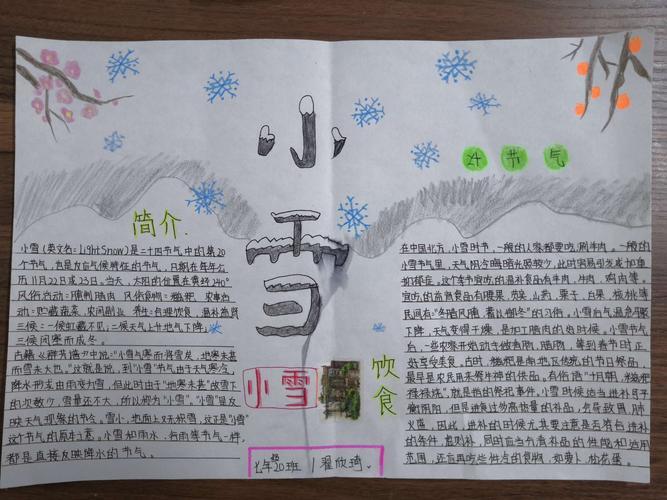 小雪
24 节 气
简介.
小雪(英文名:Light Snow)是二十四节气中的第20
个节气,也是反应气候特征的节气,日期在每年公
历11月22日或23日。当天,太阳的位置在黄经240°
风俗活动:腌制腊肉 风俗食物:糍粑 农事活
动:贮藏蔬菜,农间副业 养生:合理饮食,温补益肾
三候:一候虹藏不见;二候天气上升地气下降;
三候闭塞而成冬。
古籍《群芳谱》中说:“小雪气寒而将雪矣,地寒未甚
而雪未大也。”这就是说,到“小雪”节气由于天气寒冷,
降水形式由雨变为雪,但此时由于“地寒未甚”故雪下
的次数少,雪量还不大,所以称为“小雪”。“小雪”是反
映天气现象的节令。雪小,地面上又无积雪,这正是“小雪”
这个节气的原本之意。小雪和雨水、谷雨等节气一样,
都是直接反映降水的节气。
小雪
饮食
在中国北方,小雪时节,一般的人家都要吃涮羊肉。一般的
小雪节气里,天气阴冷晦暗光照较少,此时容易引发或加重
抑郁症。这个季节宜吃的温补食品有羊肉,牛肉,鸡肉等。
宜吃的益肾食品有腰果,芡实,山药,栗子,白果,核桃等
民间有:“冬腊风腌,蓄以御冬”的习俗。小雪后气温急剧
下降,天气变得干燥,是加工腊肉的好时候。小雪节气
后,一些农家开始动手做香肠,腊肉,等到春节时正
好享受美食。古时,糍粑是南地区传统的节日祭品,
最早是农民用来祭牛神的供品。有俗语“十月朝,糍粑
禄禄烧”,就是指的祭祀事件。小雪时候适当进补可平
衡阴阳,但是进食过多高热量的补品,会导致胃、肺
火盛,因此,进补的时候尤其要注意是否有自进补
的条件,虚则补,同时应当分清补品的性能和适用
范围,还应再吃些性寒的食物,如萝卜、松花蛋。
七年20班 翟欣琦.